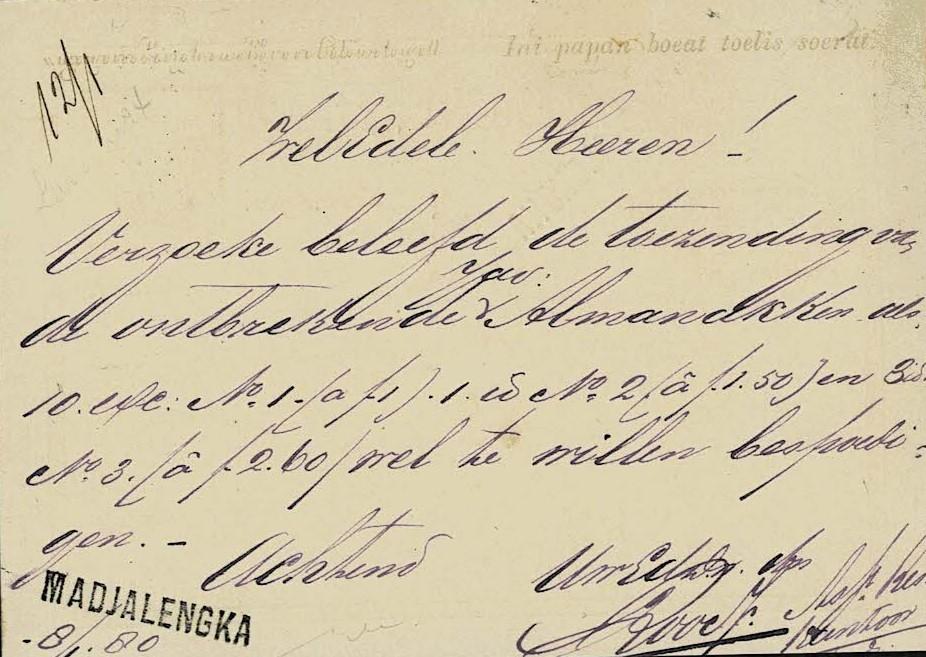 Ini papan boeat toelis soerat.
12/1
WelEdele Heeren!
Verzoeke beleefd de toezending van
Jav:
de ontbrekende Almanakken als
10. exc: No. 1. (a f 1). 1. id No. 2 (â f 1.50) en 3 id.
No. 3. (â f 2.60) wel te willen bespoedi-
gen. –
Achtend
UwEd
Kantoor
MADJALENGKA
-8/1.80